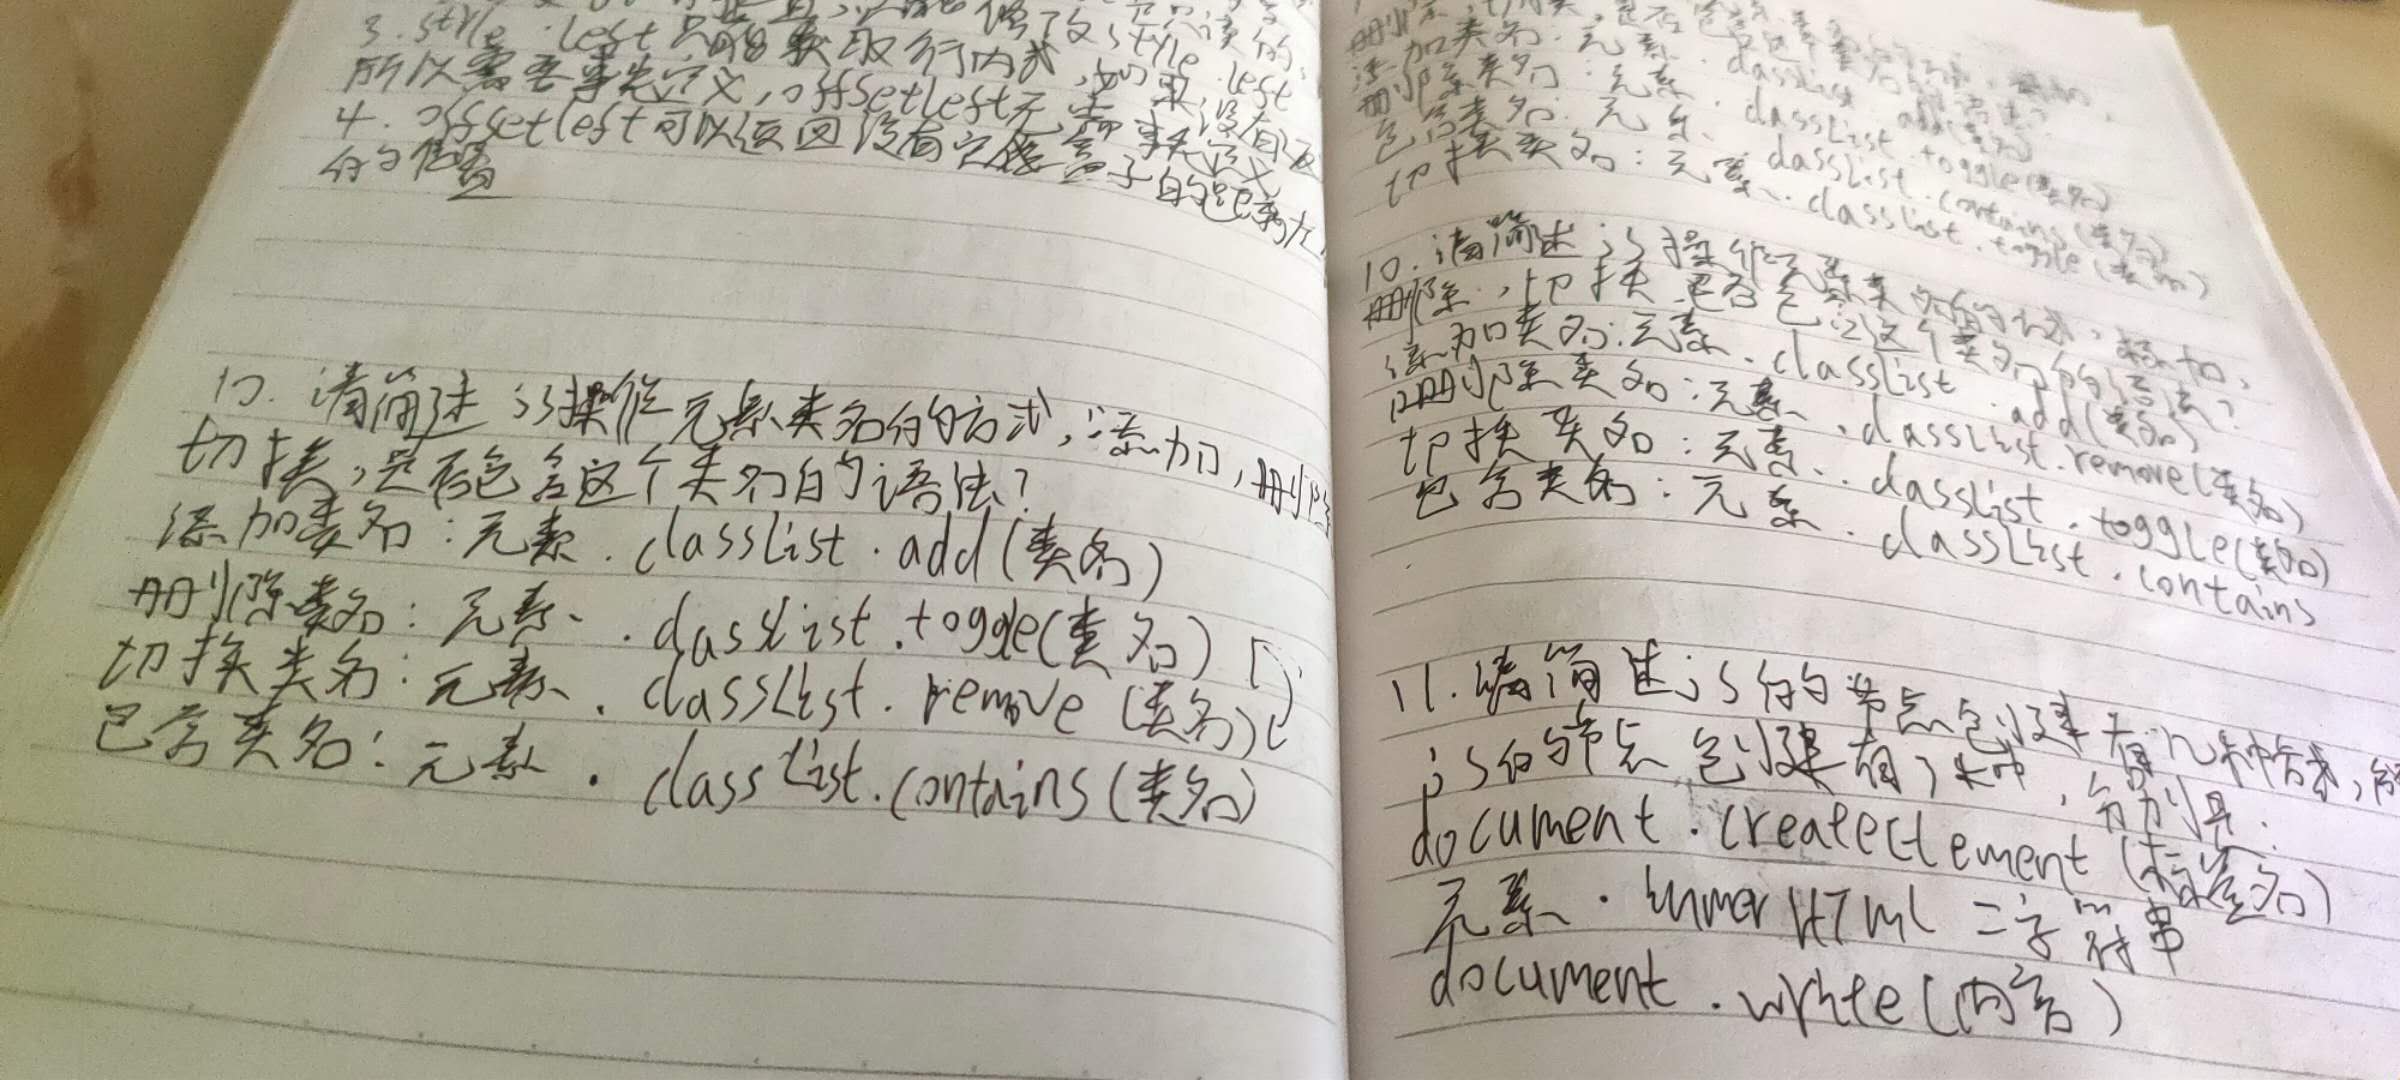 3. style.left只能获取行内式,如果没有
所以需要事先定义,offsetleft无需事先定义
4. offsetleft可以返回没有定位盒子的距离左
的位置
10. 请简述js操作元素类名的方式,添加,删除
切换,是否包含这个类名的语法?
添加类名:元素.classList.add(类名)
删除类名:元素.classList.toggle(类名)
切换类名:元素.classList.remove(类名)
包含类名:元素.classList.contains(类名)
添加类名:元素.classList.add(类名)
删除类名:元素.classList.toggle(类名)
包含类名:元素.classList.contains(类名)
切换类名:元素.classList.toggle(类名)
10. 请简述js操作元素类名的方式,添加,
删除,切换,是否包含这个类名的语法?
添加类名:元素.classList.add(类名)
删除类名:元素.classList.remove(类名)
切换类名:元素.classList.toggle(类名)
包含类名:元素.classList.contains
11. 请简述js的节点创建有几种方式,
js的节点创建有3种,分别是:
document.createElement(标签名)
元素.innerHTML=字符串
document.write(内容)